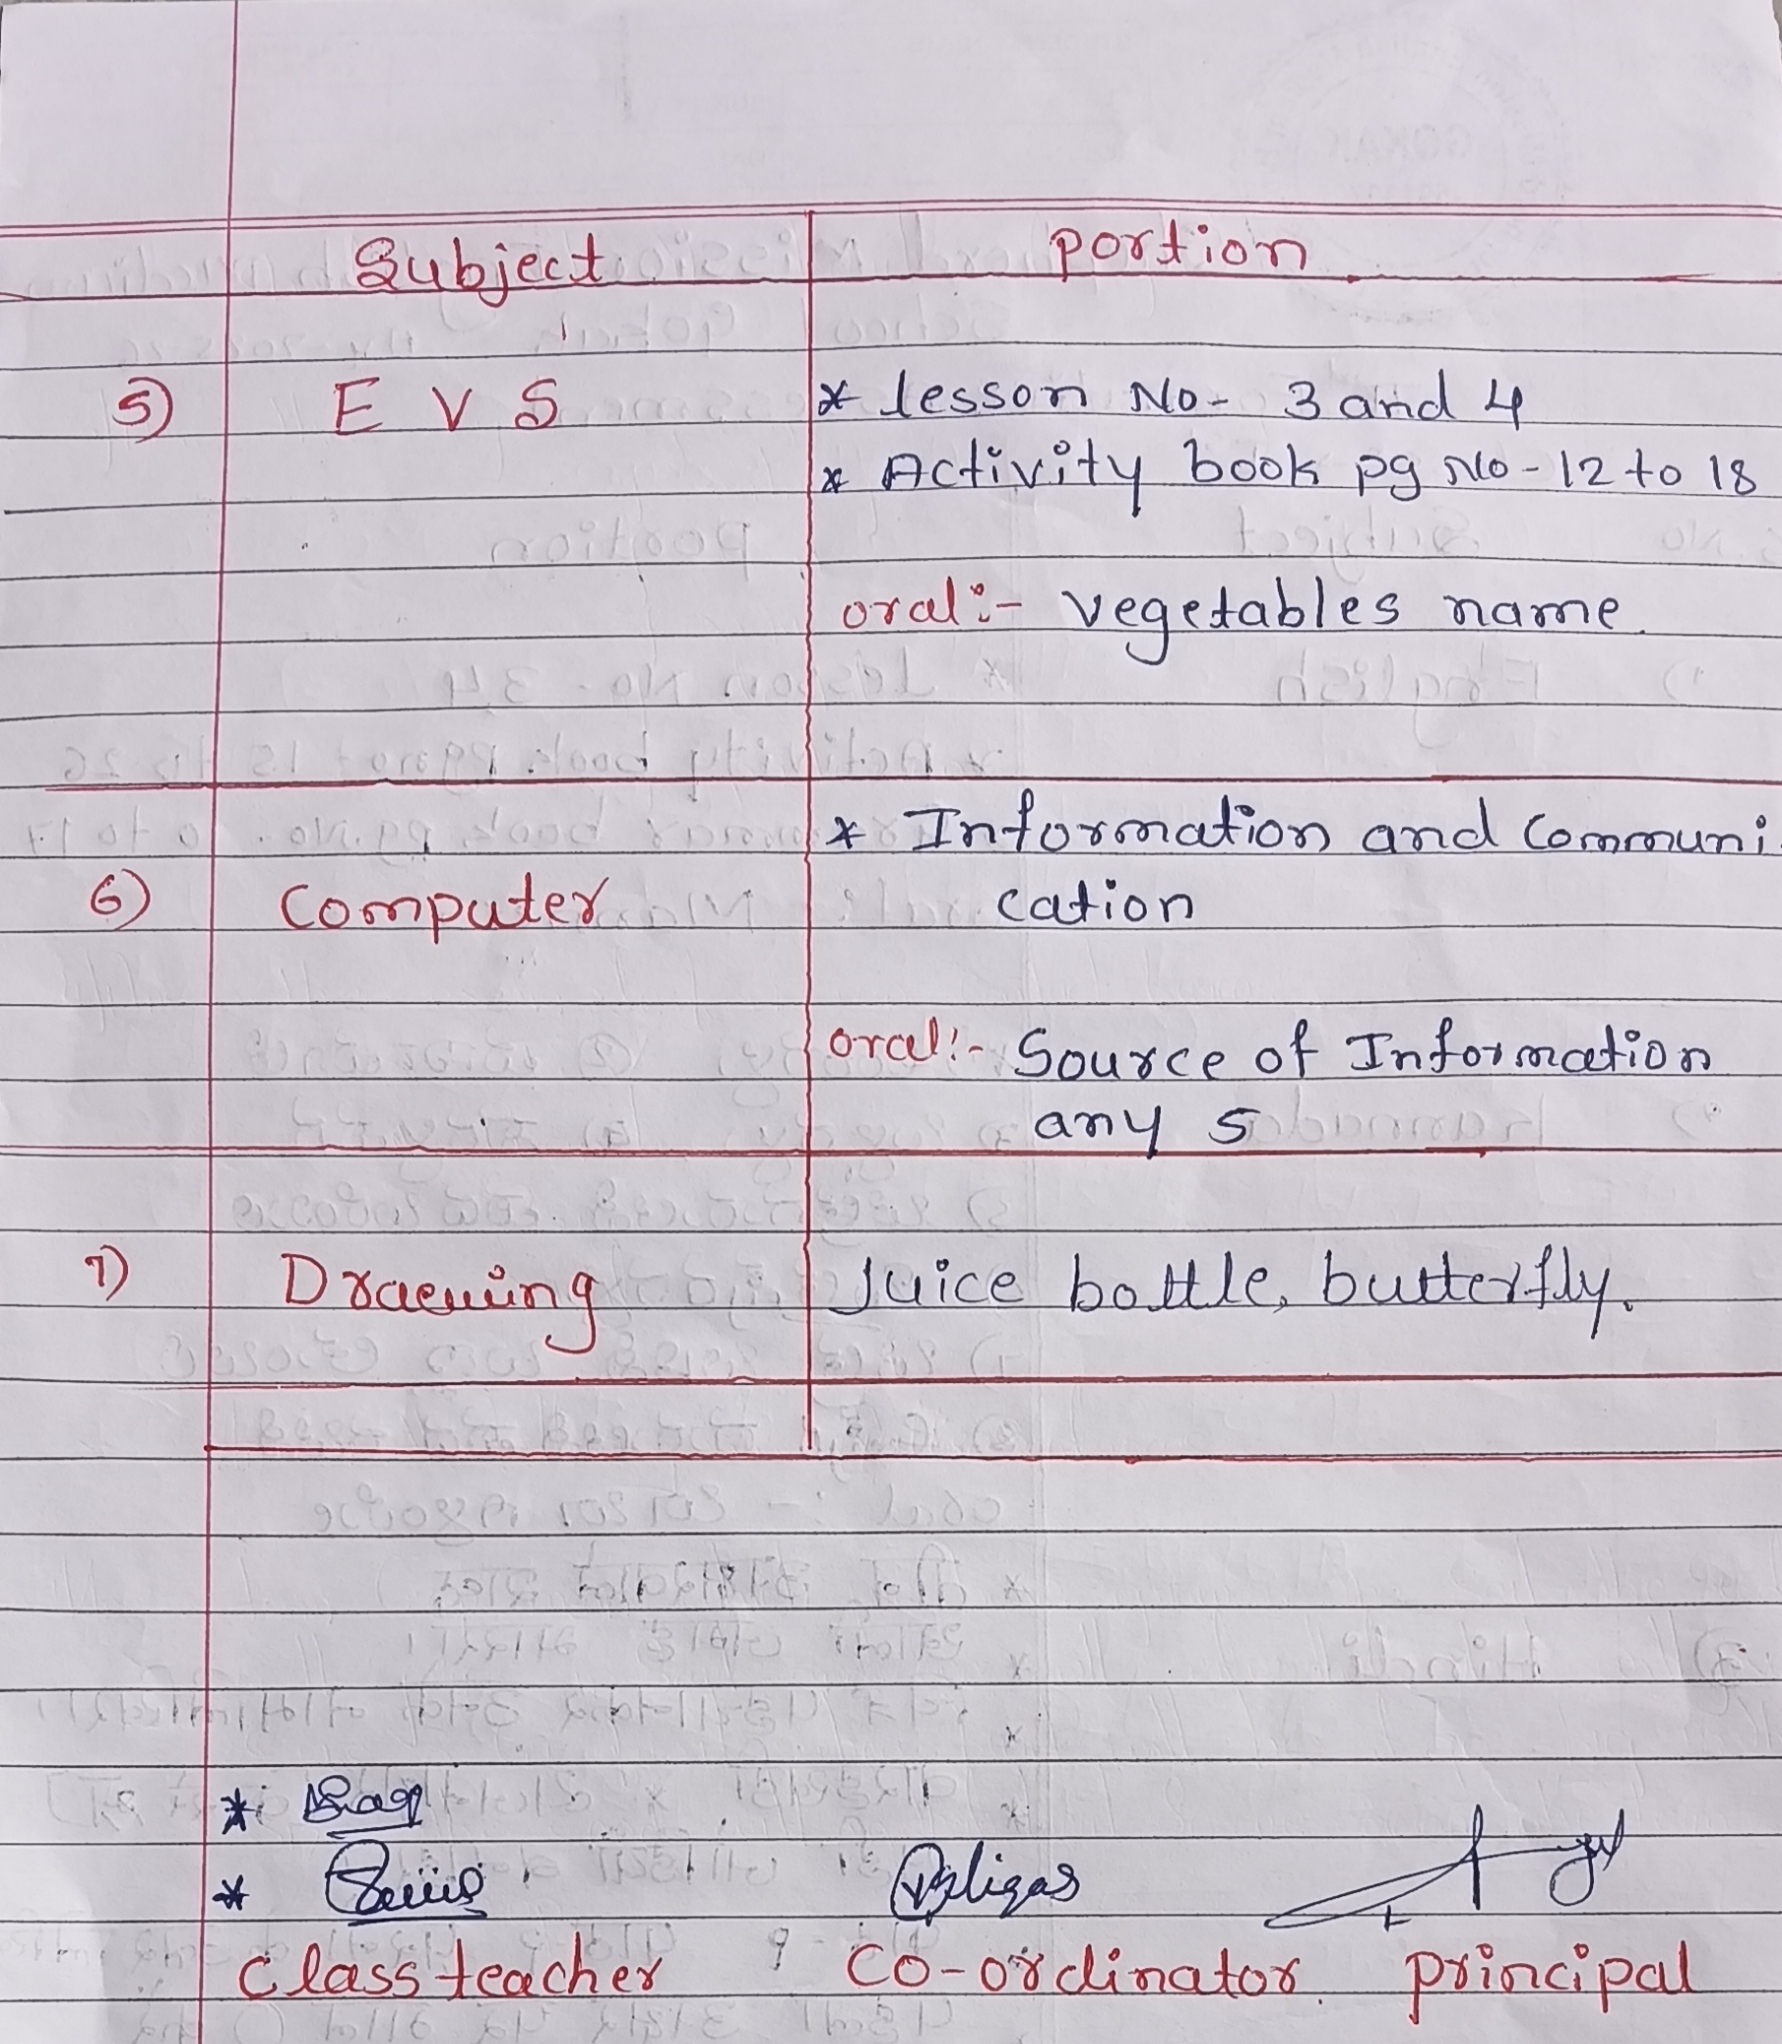 Subject portion
5) E V S * lesson No- 3 and 4
* Activity book pg No - 12 to 18
oral:- vegetables name
* Information and Communi
6) Computer cation
oral:- Source of Information
any 5
7) Drawing Juice bottle, butterfly.
*
*
Class teacher Co-ordinator principal